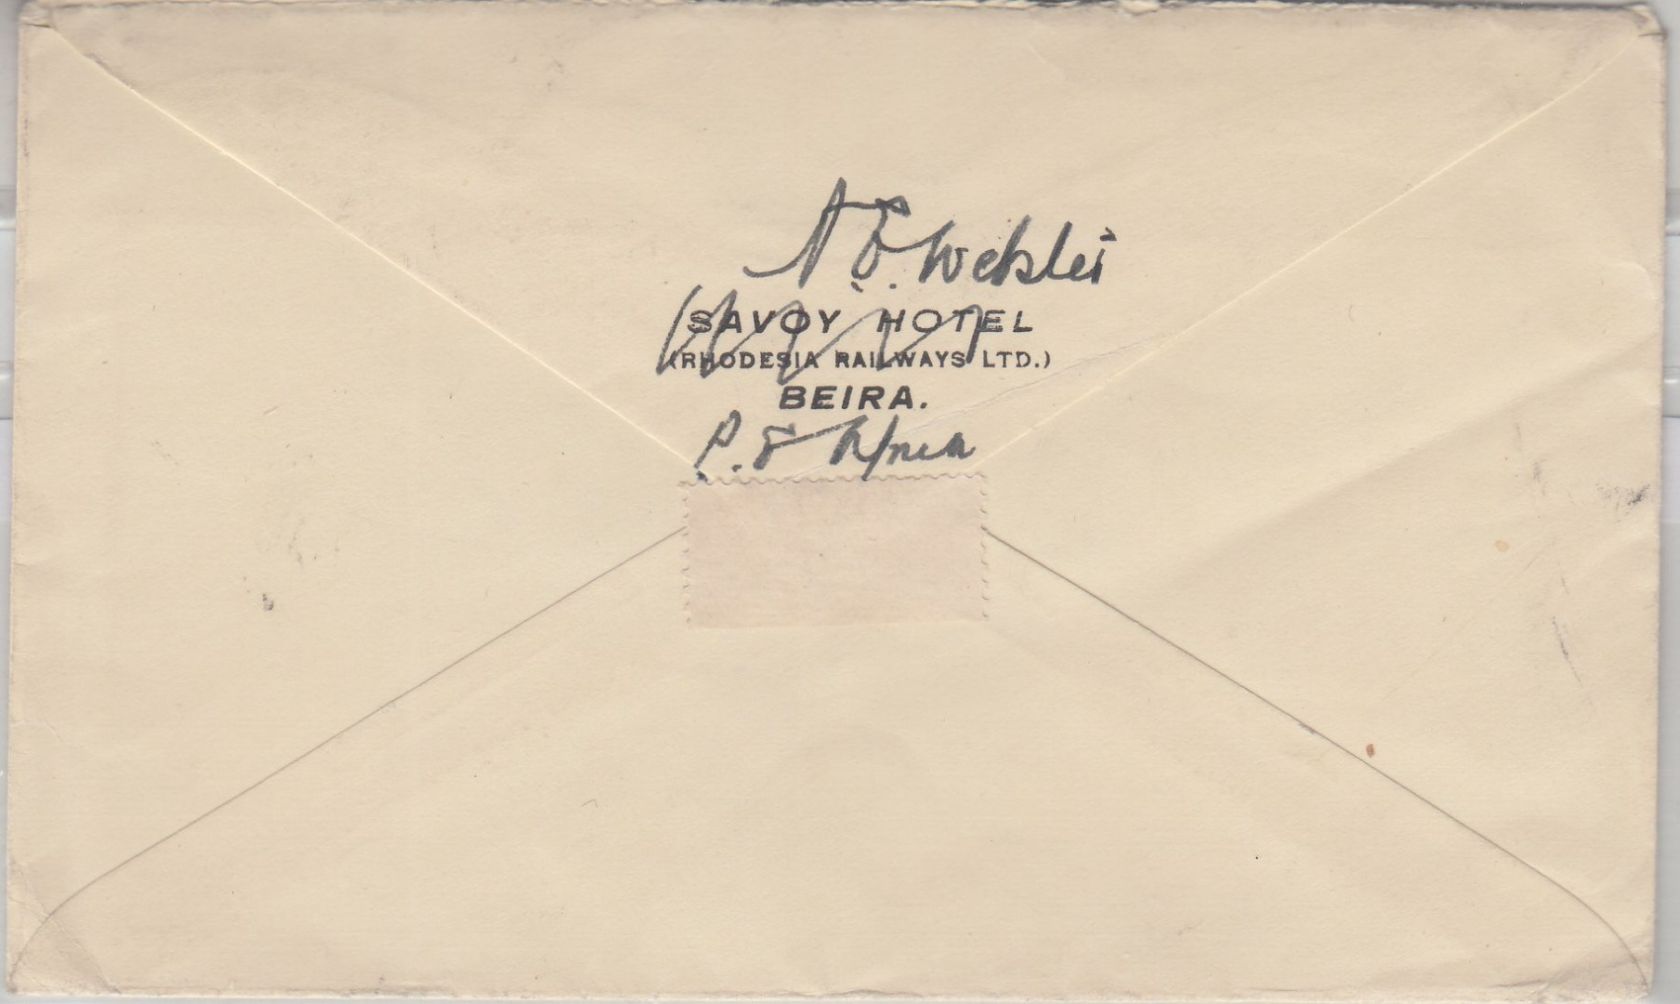 SAVOY HOTEL
(RHODESIA RAILWAYS LTD.)
BEIRA.
P. E Africa